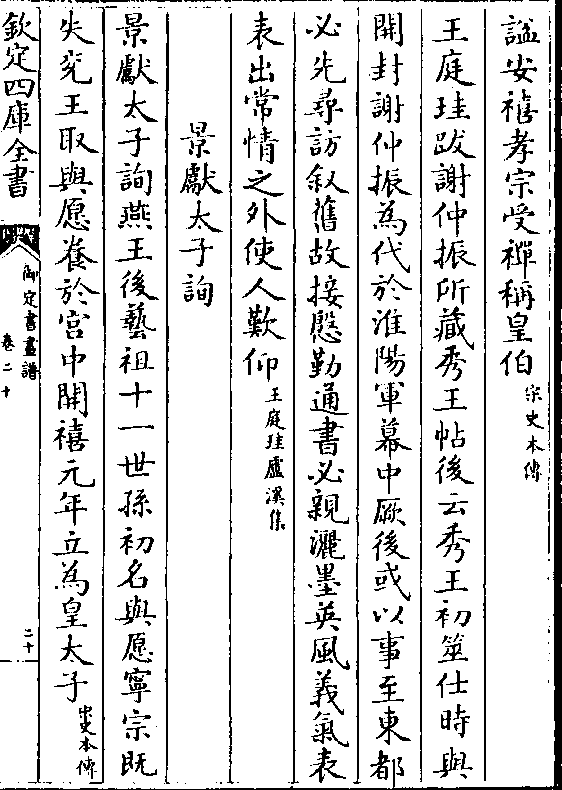 諡安禧孝宗受禪稱皇伯宋史本傳
王庭珪跋謝仲振所藏秀王帖後云秀王初筮仕時與
開封謝仲振為代於淮陽軍幕中厥後或以事至東都
必先尋訪叙舊故接慇勤通書必親灑墨英風義氣表
表出常情之外使人歎仰王庭珪盧溪集
景獻太子詢
景獻太子詢燕王後藝祖十一世孫初名與愿寧宗既
失兖王取與愿養於宫中開禧元年立為皇太子宋史本傳
欽定四庫全書
御定書畫譜
卷二十
二十